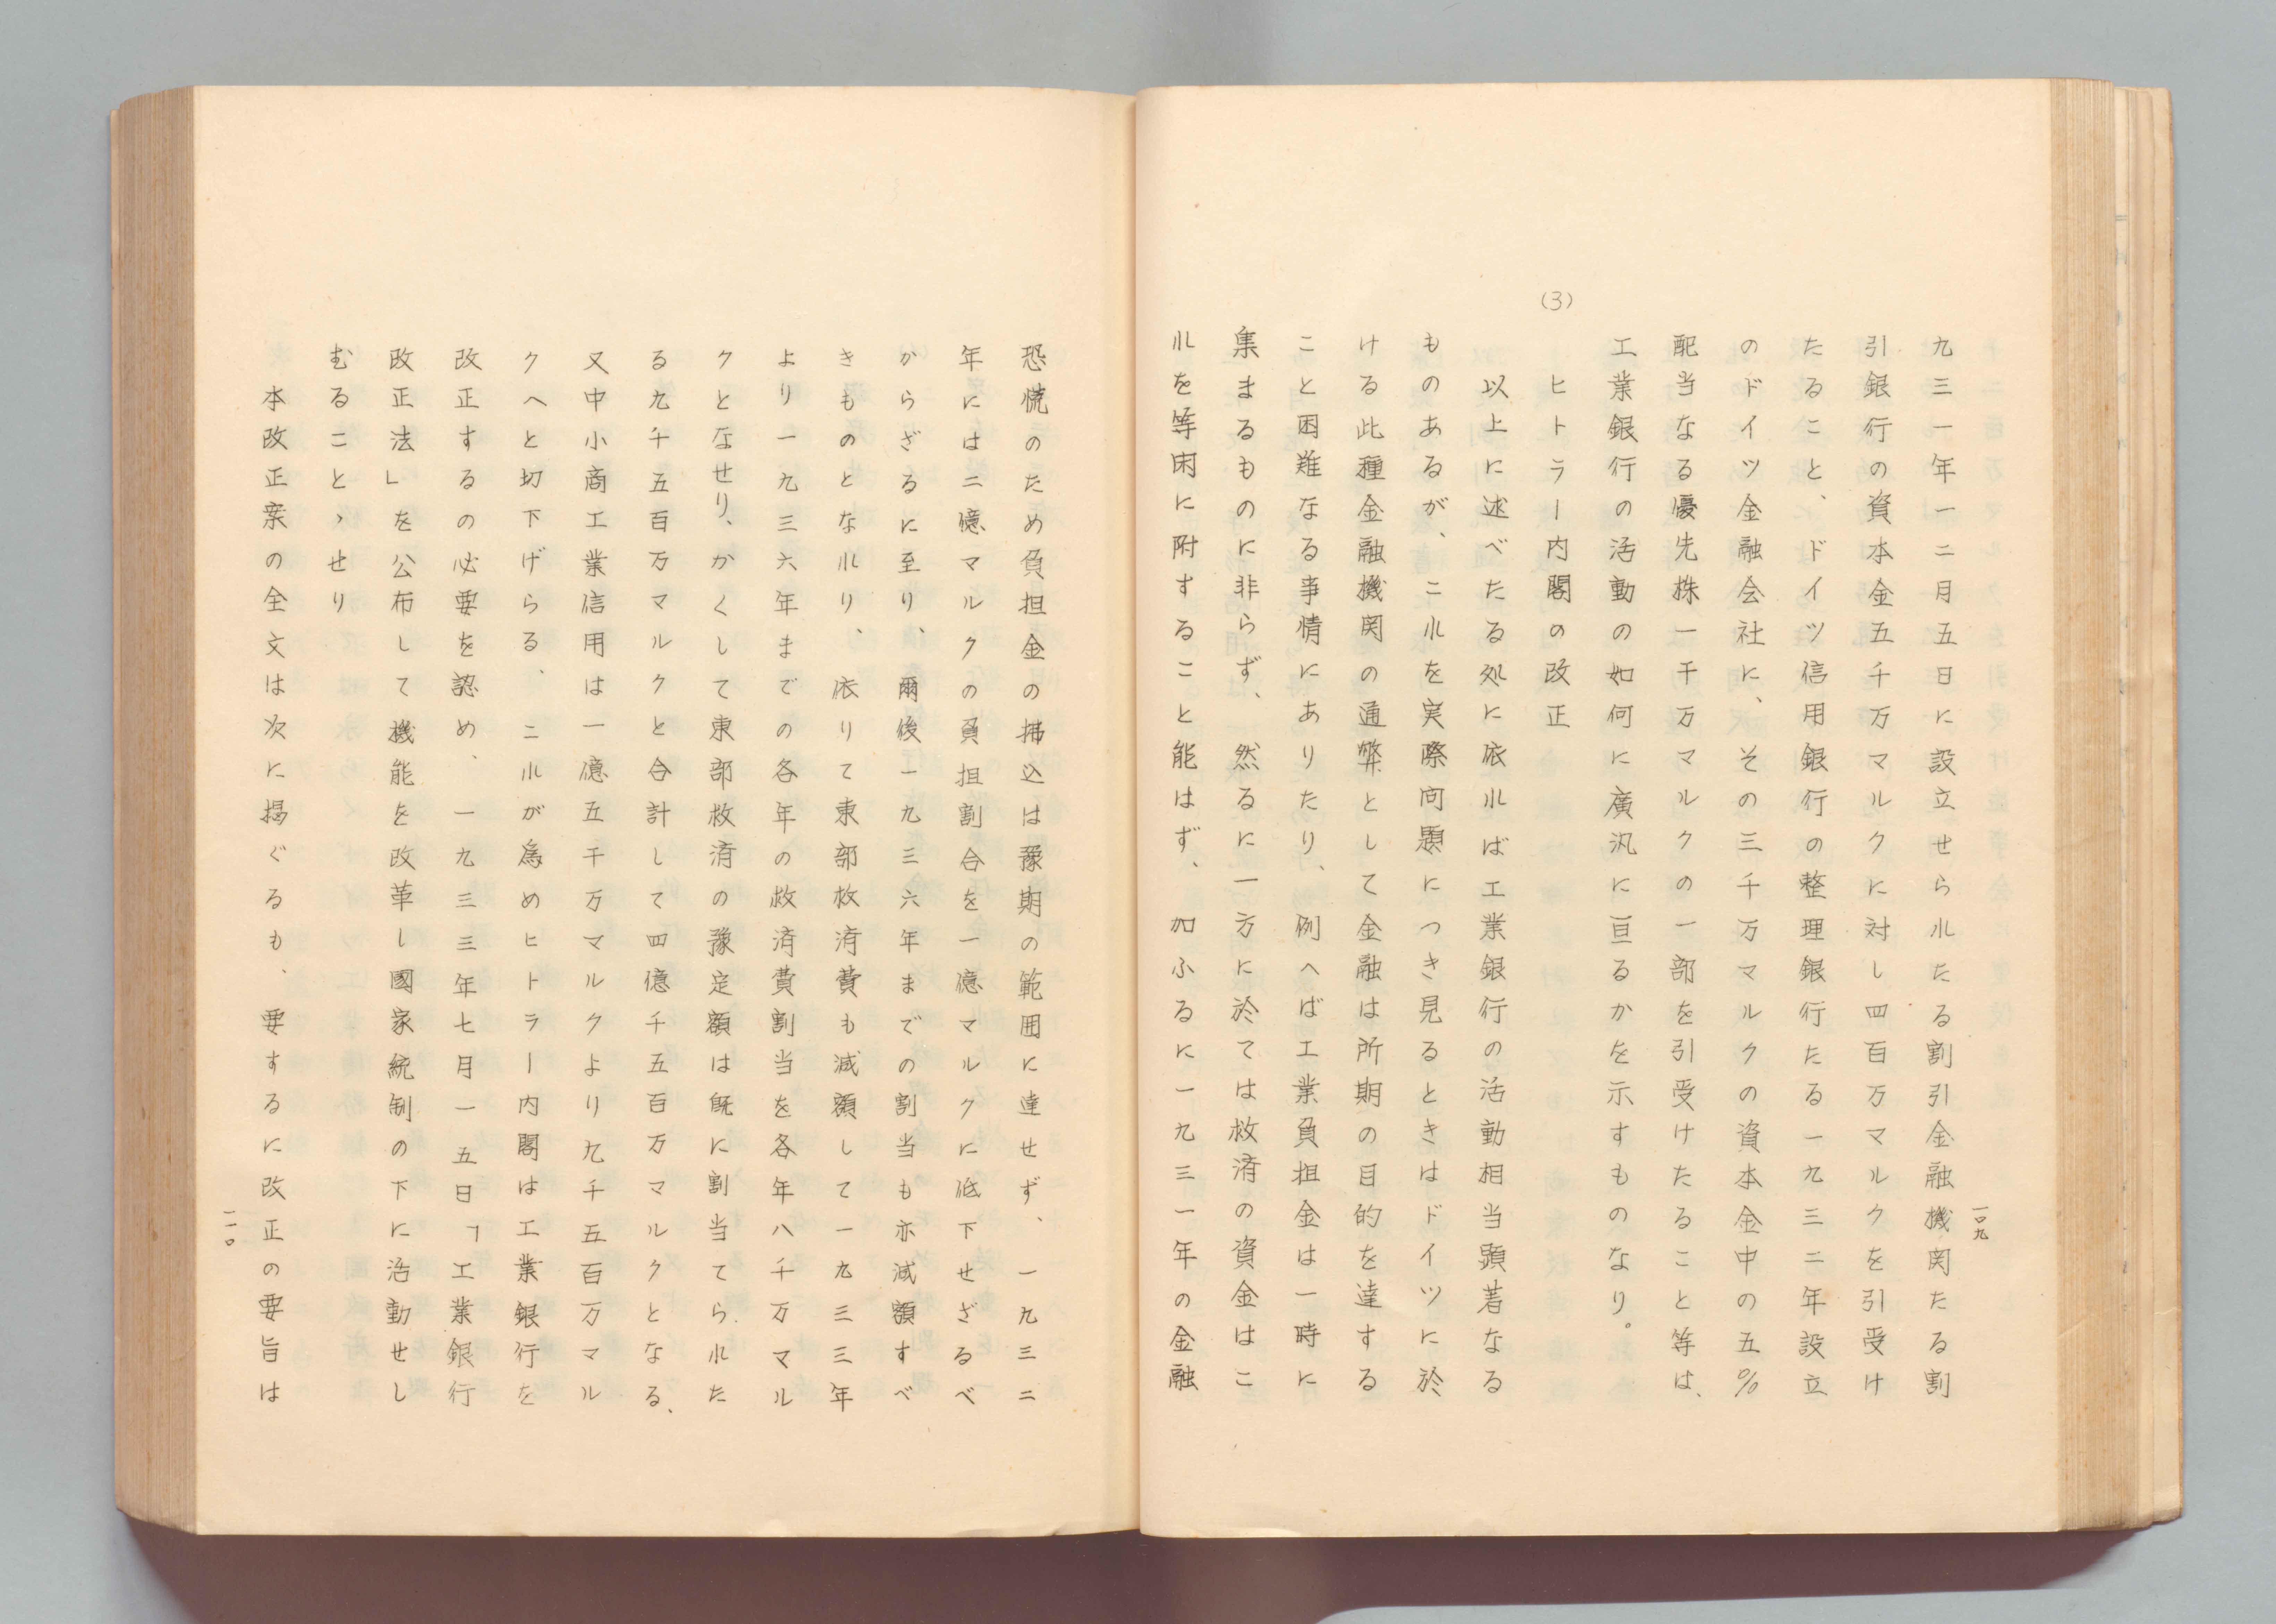 九三一年一二月五日に設立せられたる割引金融機関たる割
引銀行の資本金五千万マルクに対し四百万マルクを引受け
たること、ドイツ信用銀行の整理銀行たる一九三二年設立
のドイツ金融会社に、その三千万マルクの資本金中の五%
配当なる優先株一千万マルクの一部を引受けたること等は、
工業銀行の活動の如何に廣汎に亘るかを示すものなり。
(3)
ヒトラー内閣の改正
以上に述べたる処に依れば工業銀行の活動相当顕著なる
ものあるが、これを実際問題につき見るときはドイツに於
ける此種金融機関の通弊として金融は所期の目的を達する
こと困難なる事情にありたり、例へば工業負担金は一時に
集まるものに非らず、然るに一方に於ては救済の資金はこ
れを等閑に附すること能はず、加ふるに一九三一年の金融
一〇九
恐慌のため負担金の払込は豫期の範囲に達せず、一九三二
年には二億マルクの負担割合を一億マルクに低下せざるべ
からざるに至り、爾後一九三六年までの割当も亦減額すべ
きものとなれり、依りて東部救済費も減額して一九三三年
より一九三六年までの各年の救済費割当を各年八千万マル
クとなせり、かくして東部救済の豫定額は既に割当てられた
る九千五百万マルクと合計して四億千五百万マルクとなる、
又中小商工業信用は一億五千万マルクより九千五百万マル
クへと切下げらる、これが為めヒトラー内閣は工業銀行を
改正するの必要を認め、一九三三年七月一五日「工業銀行
改正法」を公布して機能を改革し國家統制の下に活動せし
むることゝせり
本改正案の全文は次に掲ぐるも、要するに改正の要旨は
一一〇